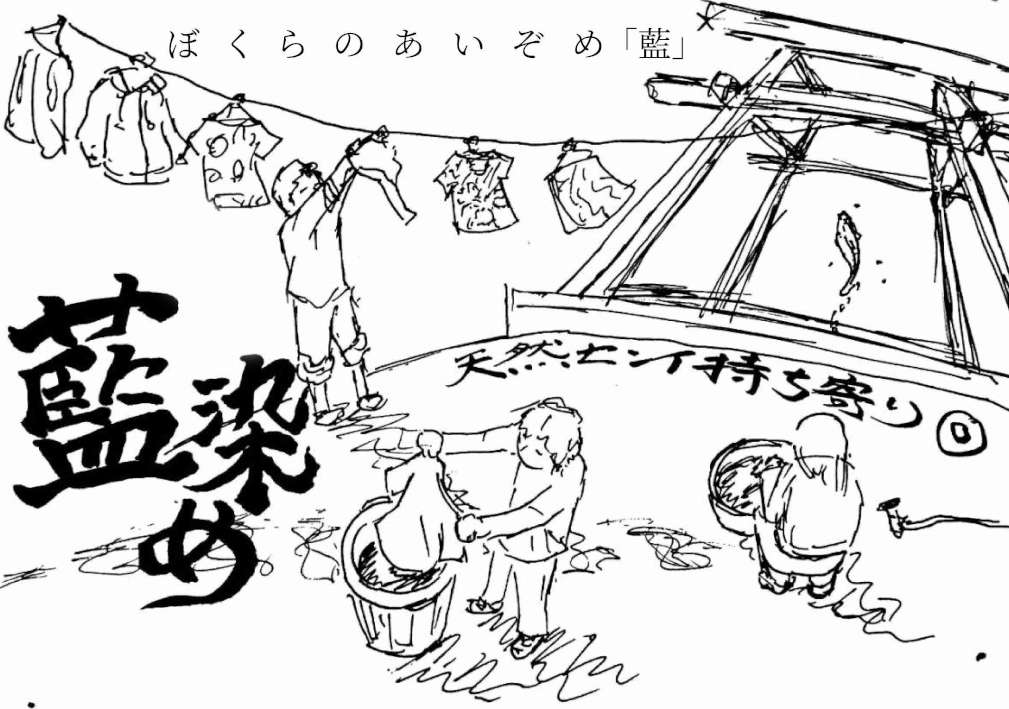 ぼくらのあいぞめ「藍」
藍染め
天然センイ持ち寄り